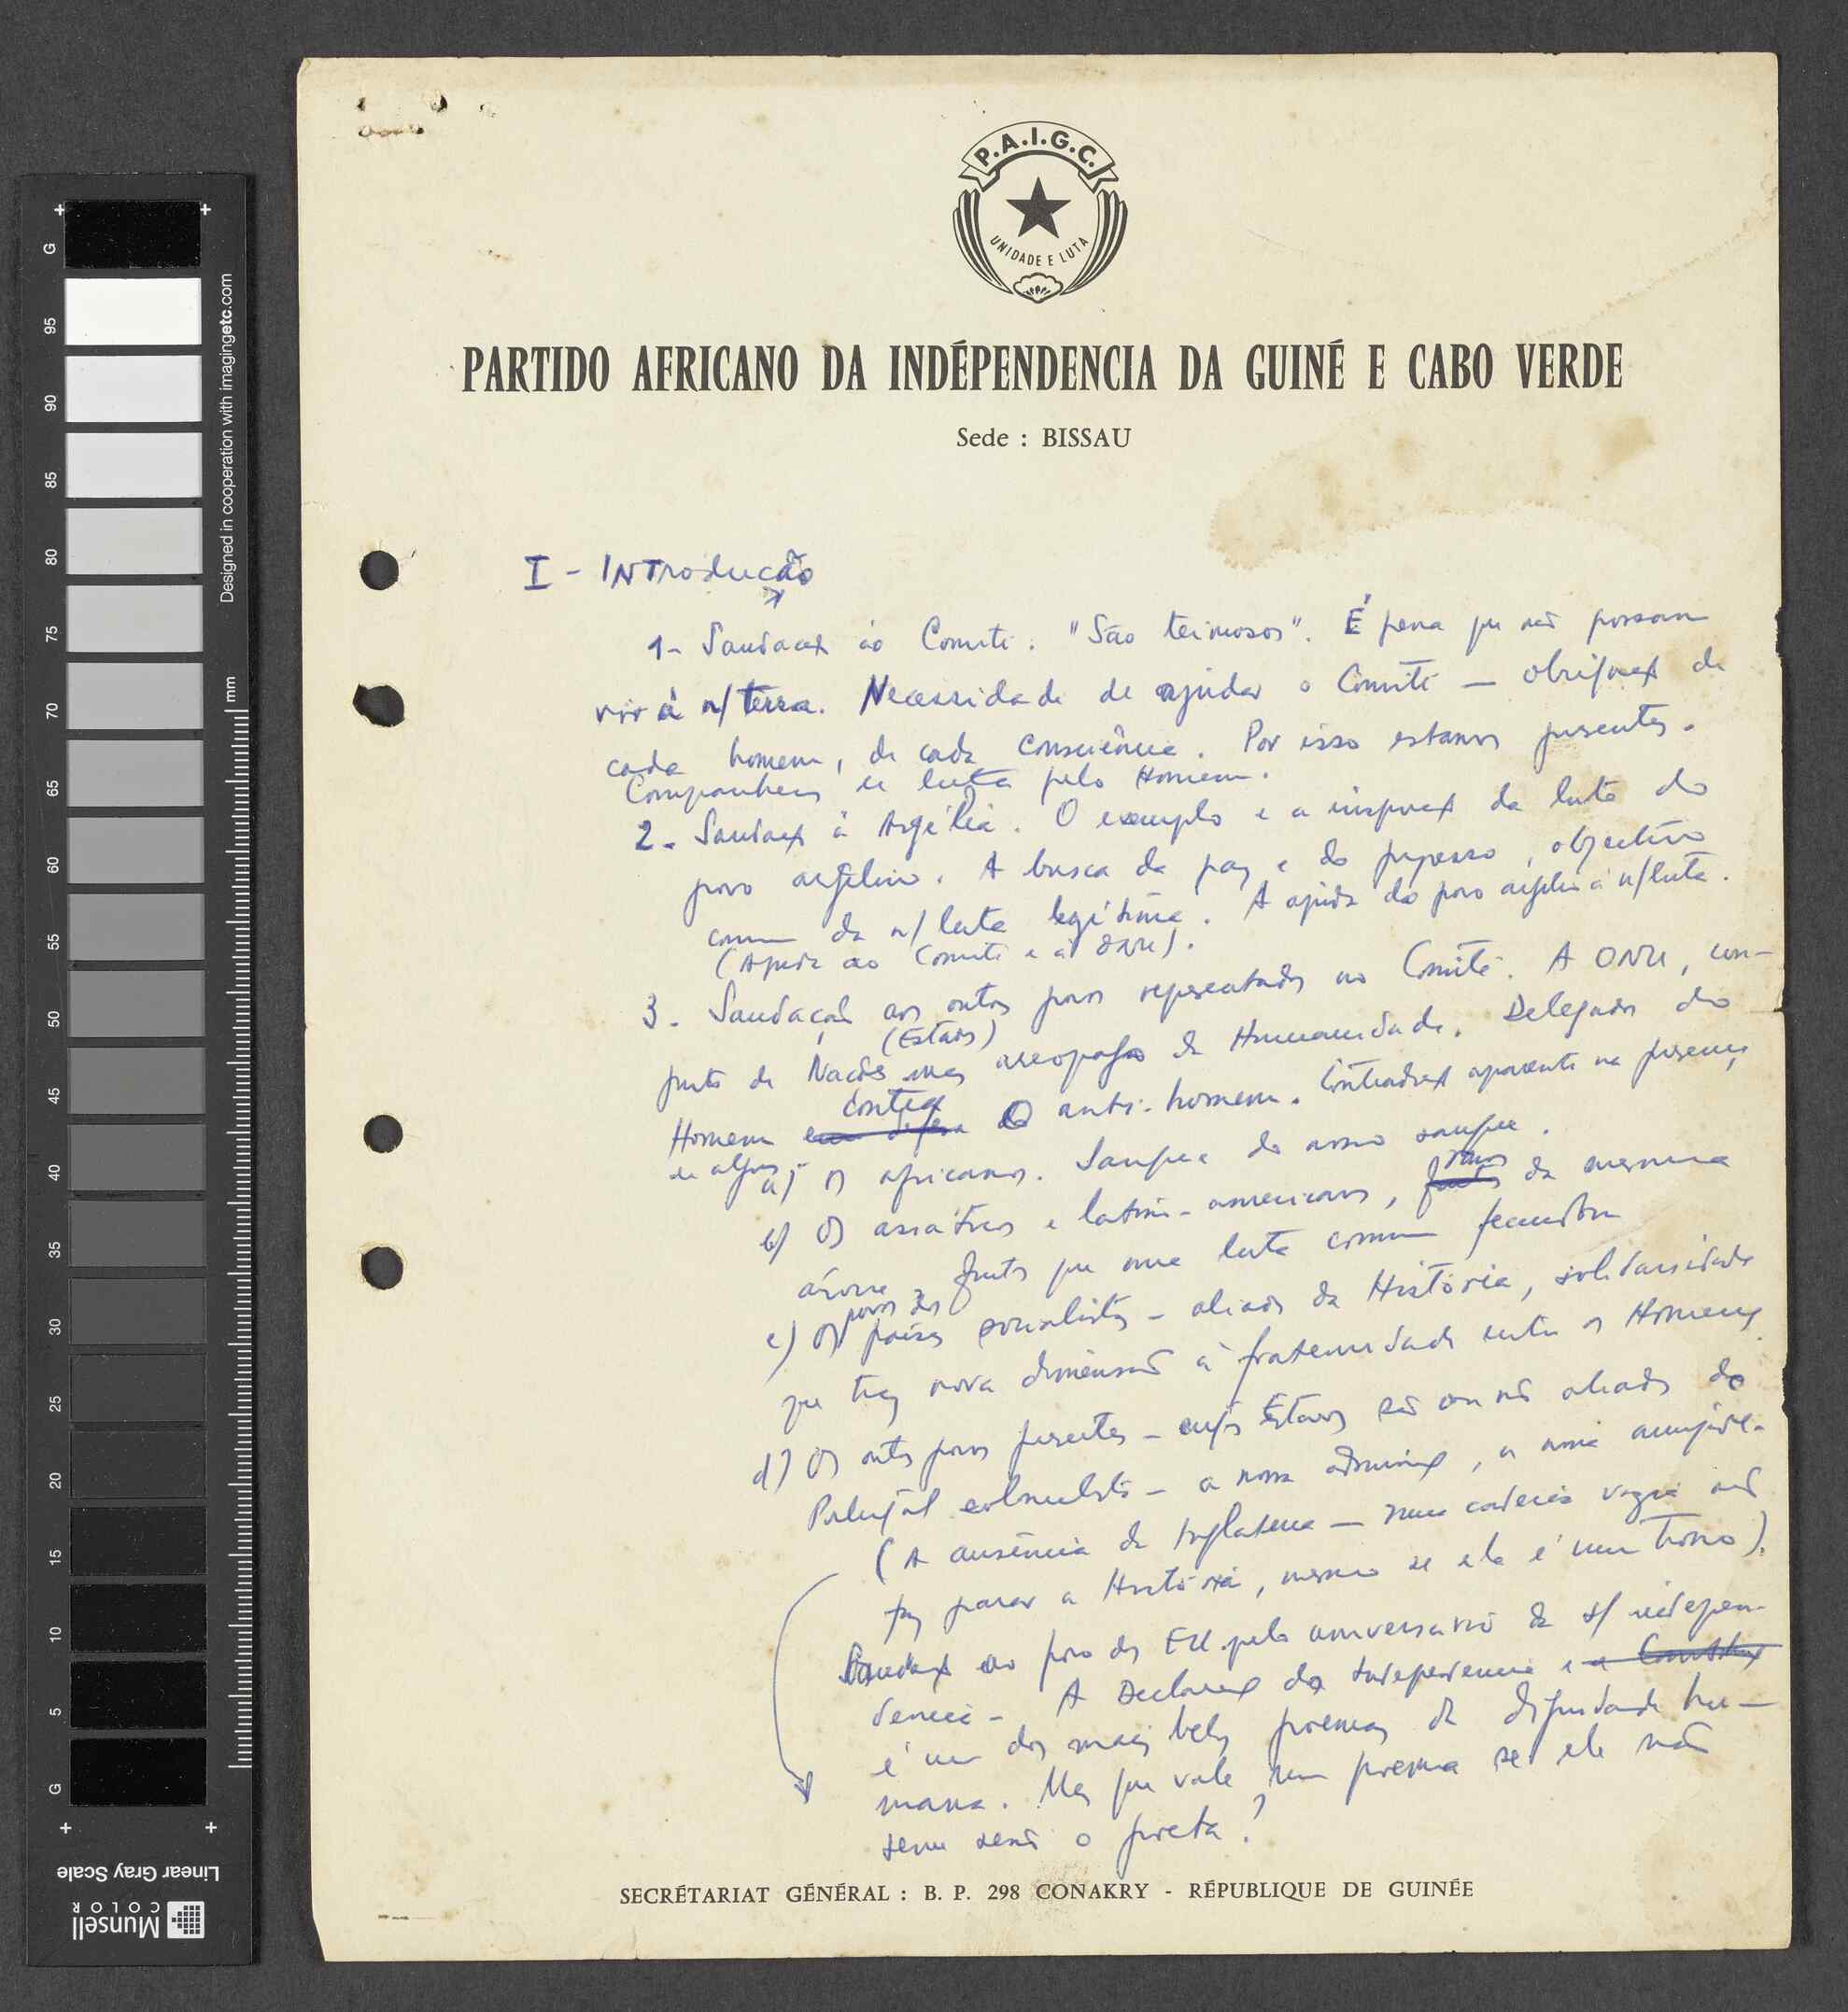 P.A.I.G.C.
UNIDADE E LUTA
PARTIDO AFRICANO DA INDÉPENDENCIA DA GUINÉ E CABO VERDE
Sede : BISSAU
I - INTRODUCÃO
1- Saudação ao Comité. "São teimosos". É pena que não possam
vir à n/ terra. Necessidade de ajudar o Comité — obrigação de
cada homem, de cada consciência. Por isso estamos presentes.
Companheiros de luta pelo Homem.
2- Saudação à Argélia. O exemplo e a inspiração da luta do
povo argelino. A busca da paz e do progresso, objectivo
comum da n/ luta legítima. A ajuda do povo argelino à n/luta.
(Ajuda ao Comité e à ONU).
3- Saudação aos outros povos representados no Comité. A ONU, con-
(Estados)
junto de Nações mas areopago da Humanidade. Delegados do
contra
Homem em defesa o anti-homem. Contradição aparente na presença
de alguns.
a) Os africanos. Sangue do nosso sangue.
b) Os asiáticos e latino-americanos, ramos da mesma
árvore, frutos que uma luta comum fecundou
povos dos
c) Os países socialistas - aliados da História, solidariedade
que traz nova dimensão à fraternidade entre os Homens
d) Os outros povos presentes - cujos Estados são ou não aliados de
Portugal colonialista - a nossa admiração, a nossa amizade.
(A ausência da Inglaterra — uma cadeira vazia não
faz parar a História, mesmo se ela é um trono).
Saudação ao povo dos EU pelo aniversário da s/ indepen-
dência - A Declaração da Independência e a Constituição
é um dos mais belos poemas da dignidade hu-
mana. Mas que vale um poema se ele não
serve senão o poeta?
SECRÉTARIAT GÉNÉRAL : B. P. 298 CONAKRY - RÉPUBLIQUE DE GUINÉE
G
95
90
85
80
75
70
65
60
55
50
45
40
35
30
25
20
15
10
5
G
mm
Designed in cooperation with imagingetc.com
Linear Gray Scale
Munsell
COLOR